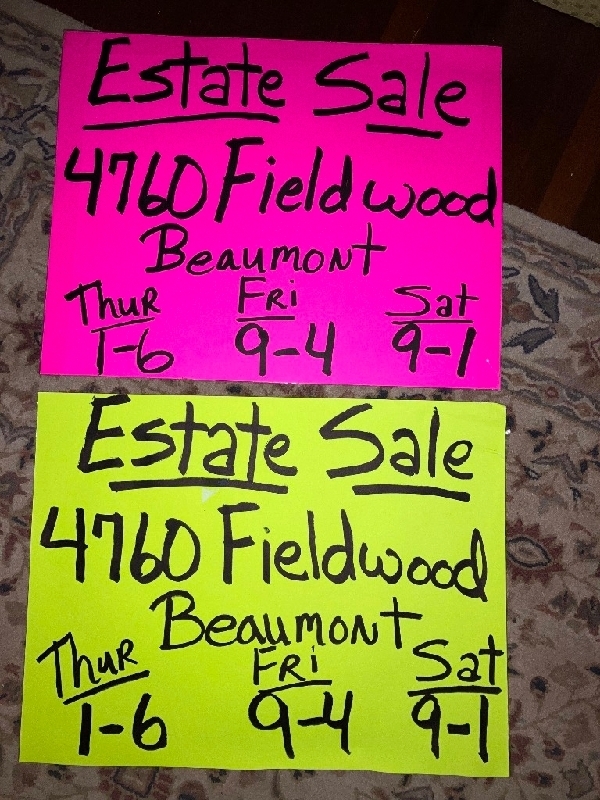 Estate Sale
4760 Fieldwood
Beaumont
Thur Fri Sat
1-6 9-4 9-1
Estate Sale
4760 Fieldwood
Beaumont
Thur Fri Sat
1-6 9-4 9-1